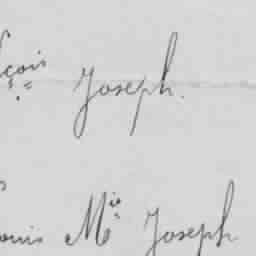 çois Joseph.
ouis Mie Joseph